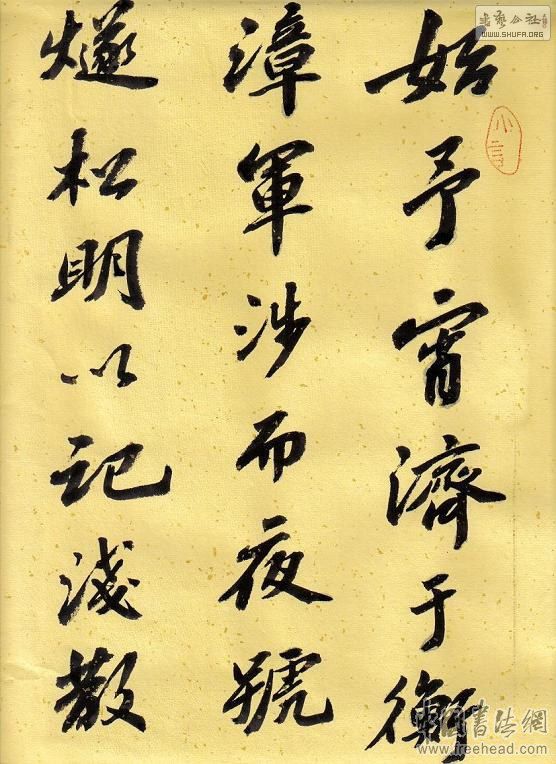 始予宵濟于衡
漳軍涉而夜號
燧松明以記淺散
書藝公社
WWW.SHUFA.ORG
中国書法網
www.freehead.com